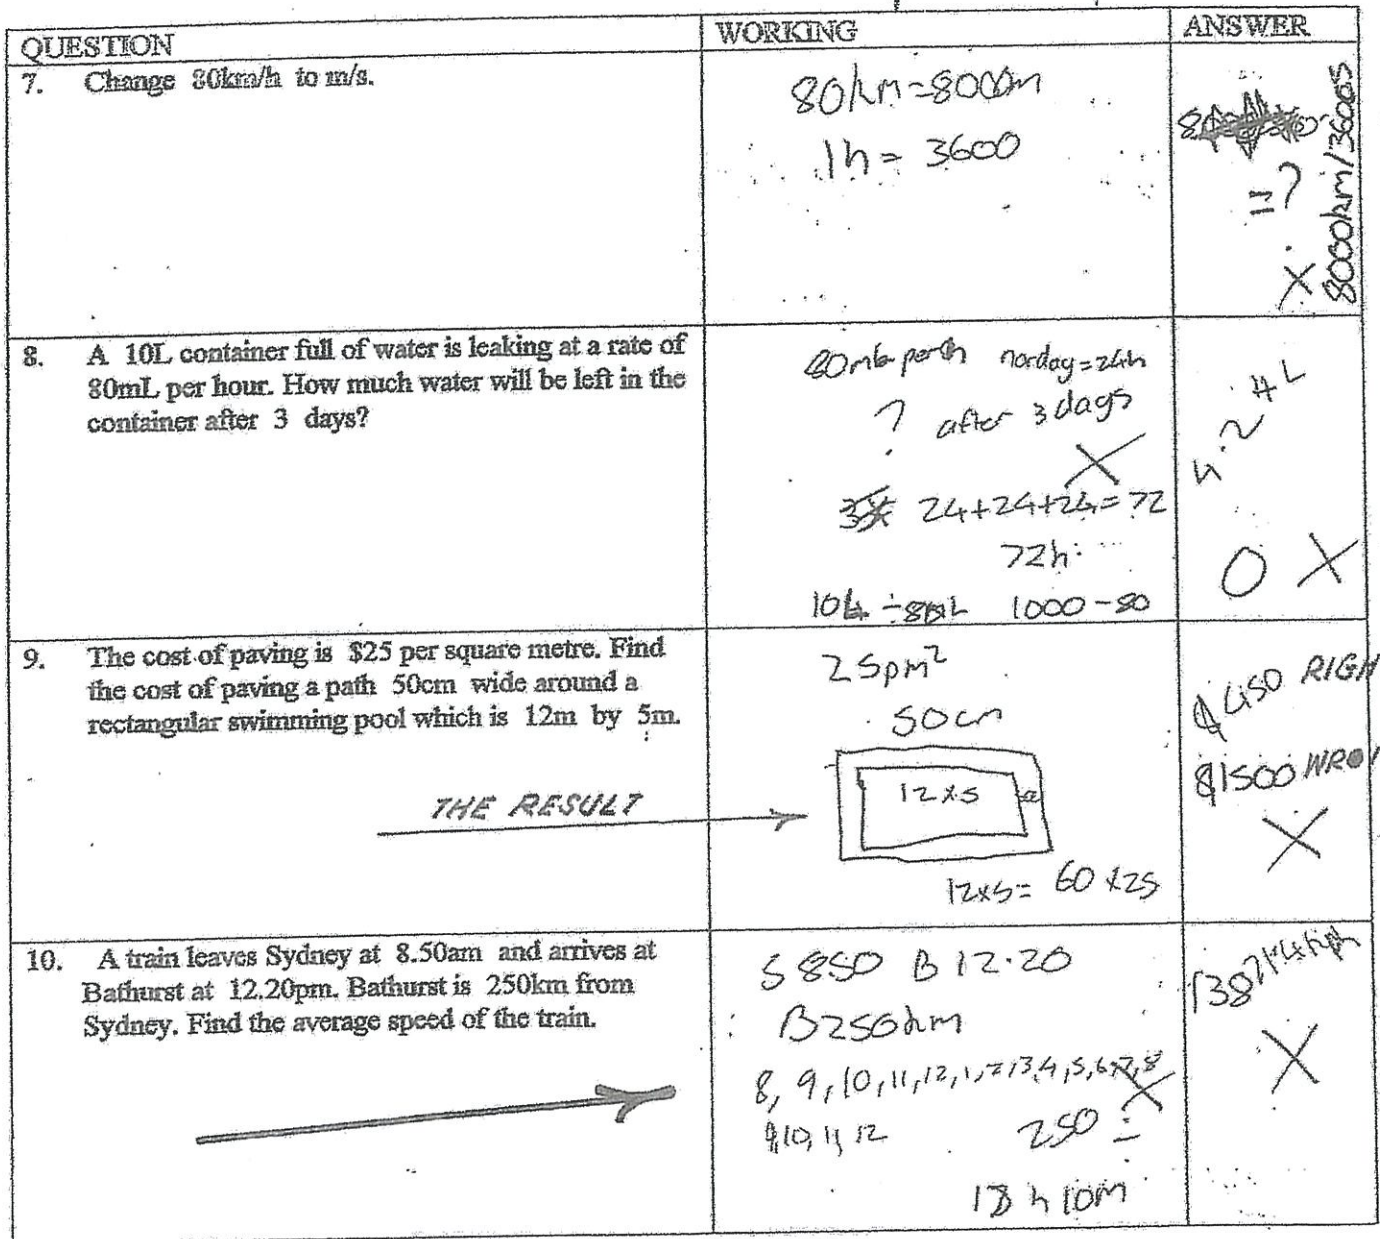 QUESTION
WORKING
ANSWER
7. Change 80km/h to m/s.
80km=8000m
1h = 3600
=?
8000km/3600s
X
8. A 10L container full of water is leaking at a rate of
80mL per hour. How much water will be left in the
container after 3 days?
80mL per h
day=24h
? after 3 days
X
24+24+24=72
72h
10L ÷ 80mL 1000-80
4.24L
0 X
9. The cost of paving is $25 per square metre. Find
the cost of paving a path 50cm wide around a
rectangular swimming pool which is 12m by 5m.
THE RESULT
25pm²
50cm
12x5
12x5= 60x25
$450 RIGH
$1500 WRO
X
10. A train leaves Sydney at 8.50am and arrives at
Bathurst at 12.20pm. Bathurst is 250km from
Sydney. Find the average speed of the train.
S 850 B 12.20
B250km
8, 9, 10, 11, 12, 1, 2, 3, 4, 5, 6, 7, 8
X
9, 10, 11, 12
250 ÷
h 10m
71.4kph
X